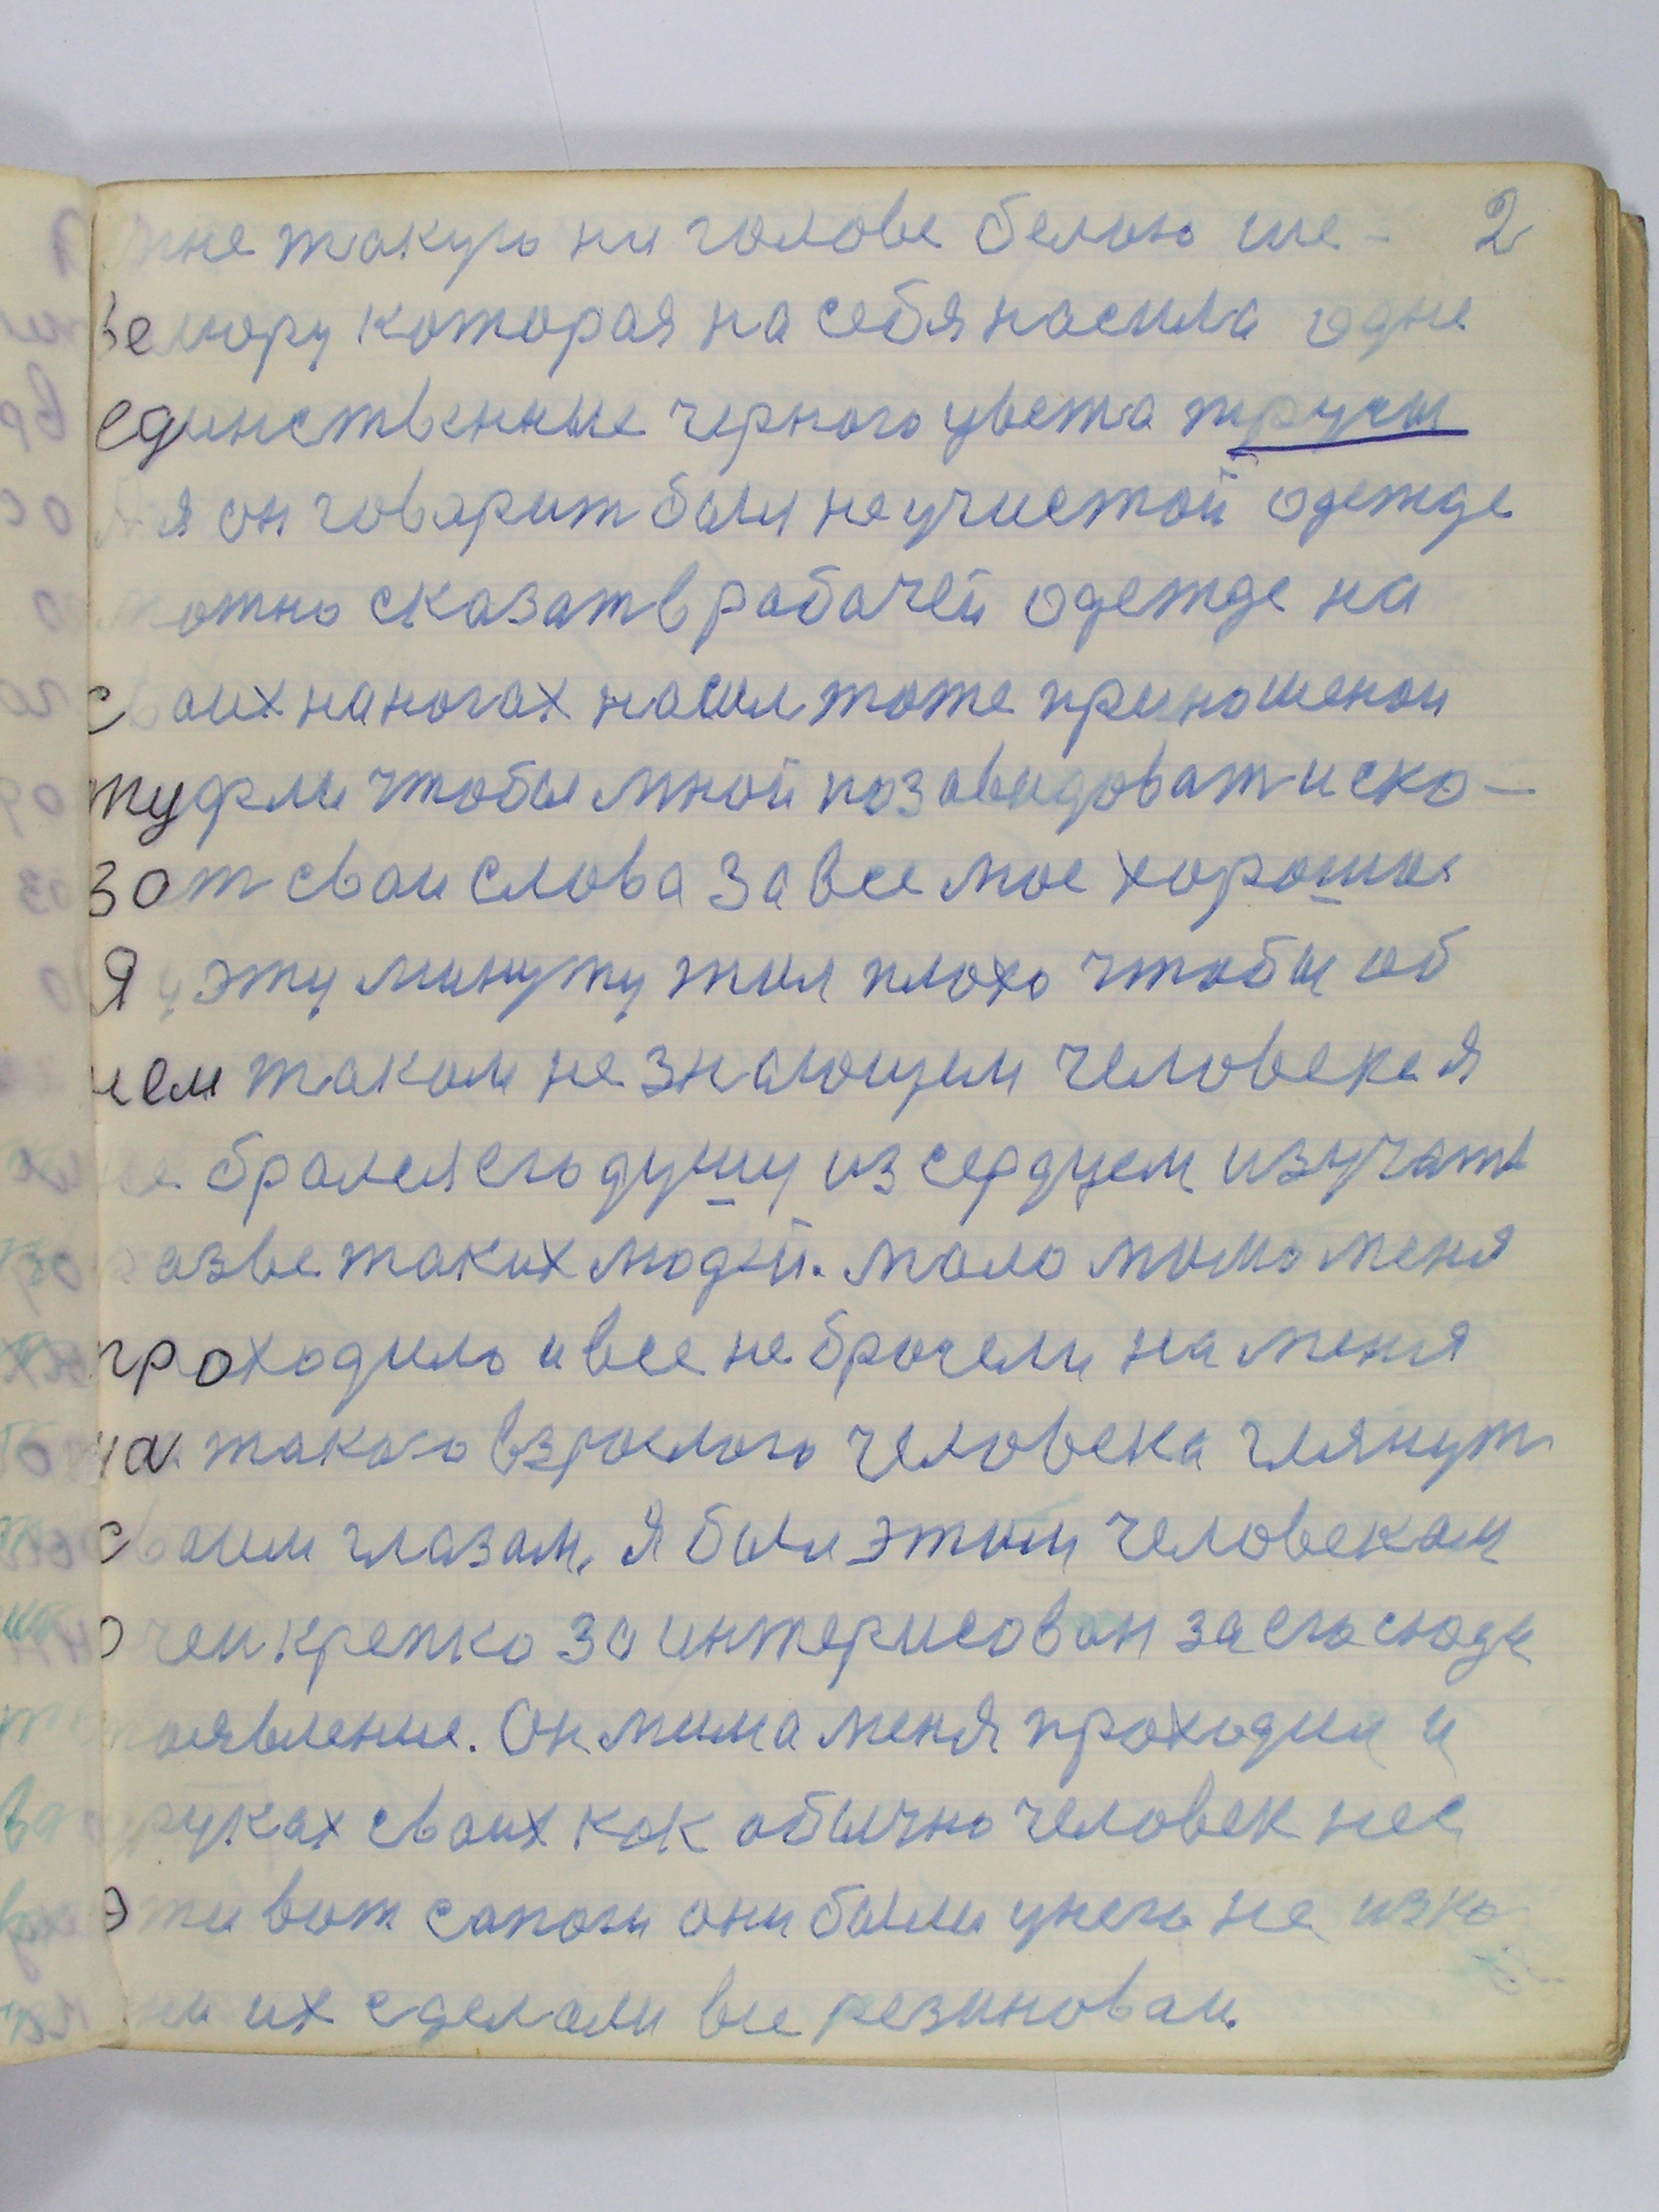 мне такую на голове белою ше- 2
велюру которая на себя насила одне
единственные черного цвета трусы
А я он говорит был не учистой одежде
можно сказат в рабочей одежде на
своих на ногах насил тоже приношенои
туфли чтобы мной позавидоват и ска-
зат свои слова за все мое хорошое
Я у эту минуту жил плохо чтобы об
нем таком не знающем человеке я
не брался его душу из сердцем изучать
разве таких людей. мало мимо меня
проходило и все не брочели на меня
на такого взрослого человека глянут
своим глазам. Я был этим человекам
очен крепко заинтерисован за его сюда
появление. Он мима меня проходил и
руках своих как обычно человек нес
эти вот сапоги они были унего не изко
жи их сделали все резиноваи.